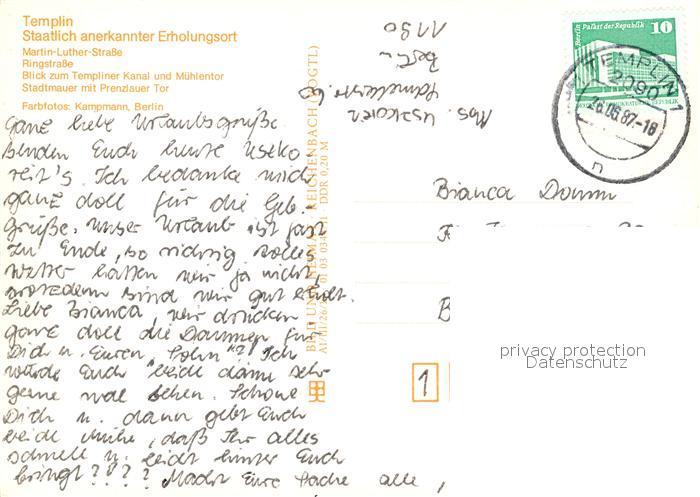 Templin
Staatlich anerkannter Erholungsort
Martin-Luther-Straße
Ringstraße
Blick zum Templiner Kanal und Mühlentor
Stadtmauer mit Prenzlauer Tor
Farbfotos: Kampmann, Berlin
Ganz liebe Urlaubsgrüße
senden Euch heute
Ich bedanke mich
ganz doll für die Geb.-
grüße. Unser Urlaub ist fast
zu Ende, so richtig tolles
Wetter hatten wir ja nicht,
trotzdem sind wir gut erholt.
Liebe Bianca, wir drücken
ganz doll die Daumen für
Dich u. Euren "Sohn"? Ich
würde Euch beide dann sehr
gerne mal sehen. Schone
Dich u. dann gebt Euch
beide Mühe, daß Ihr alles
schnell u. leicht hinter Euch
bringt???? Macht Eure Sache alle,
Abs.
Berlin
1190
BILD UND HEIMAT REICHENBACH (VOGTL)
DDR 0,20 M
Berlin, Palast der Republik
10
TEMPLIN 1
2090
26.06.87-18
n
Bianca
1
privacy protection
Datenschutz